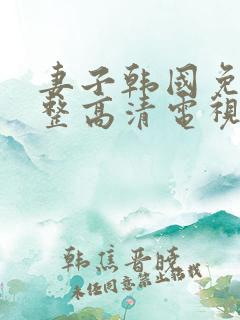 妻子韩国免
整高清电视
韩焦晋晓
未经同意禁止转载